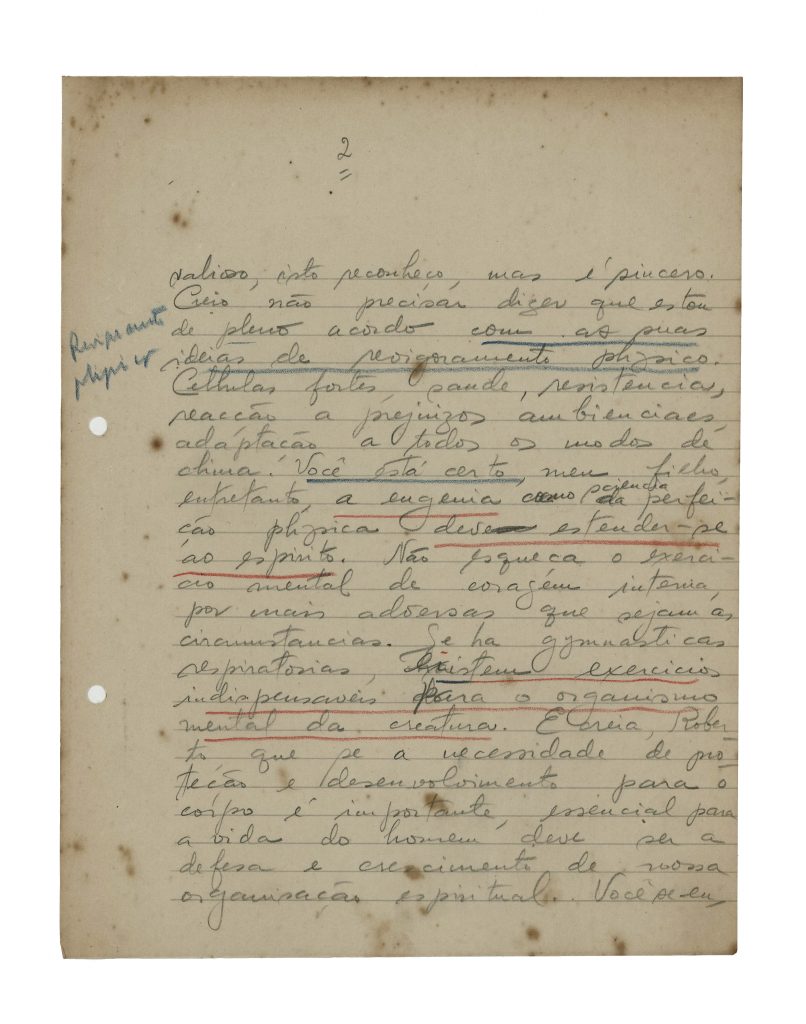 2
valioso, isto reconheço, mas é sincero.
Creio não precisar dizer que estou
de pleno acordo com as suas
idéias de revigoramento physico.
physico
Cellulas fortes, saude, resistencia,
reacção a prejuizos ambienciaes,
adaptação a todos os modos de
clima! Você está certo, meu filho,
entretanto, a eugenia como sciencia da perfei-
ção physica deve estender-se
ao espirito. Não esqueça o exerci-
cio mental de coragem interna,
por mais adversas que sejam as
circumstancias. Se ha gymnasticas
respiratorias, existem exercicios
indispensaveis para o organismo
mental da creatura. E creia, Rober-
to que se a necessidade de pro-
teção e desenvolvimento para o
corpo é importante, essencial para
a vida do homem, deve ser a
defesa e crescimento de nossa
organisação espiritual. Você se en,